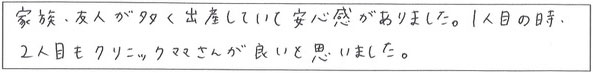 家族、友人が多く出産していて安心感がありました。1人目の時、
2人目もクリニックママさんが良いと思いました。